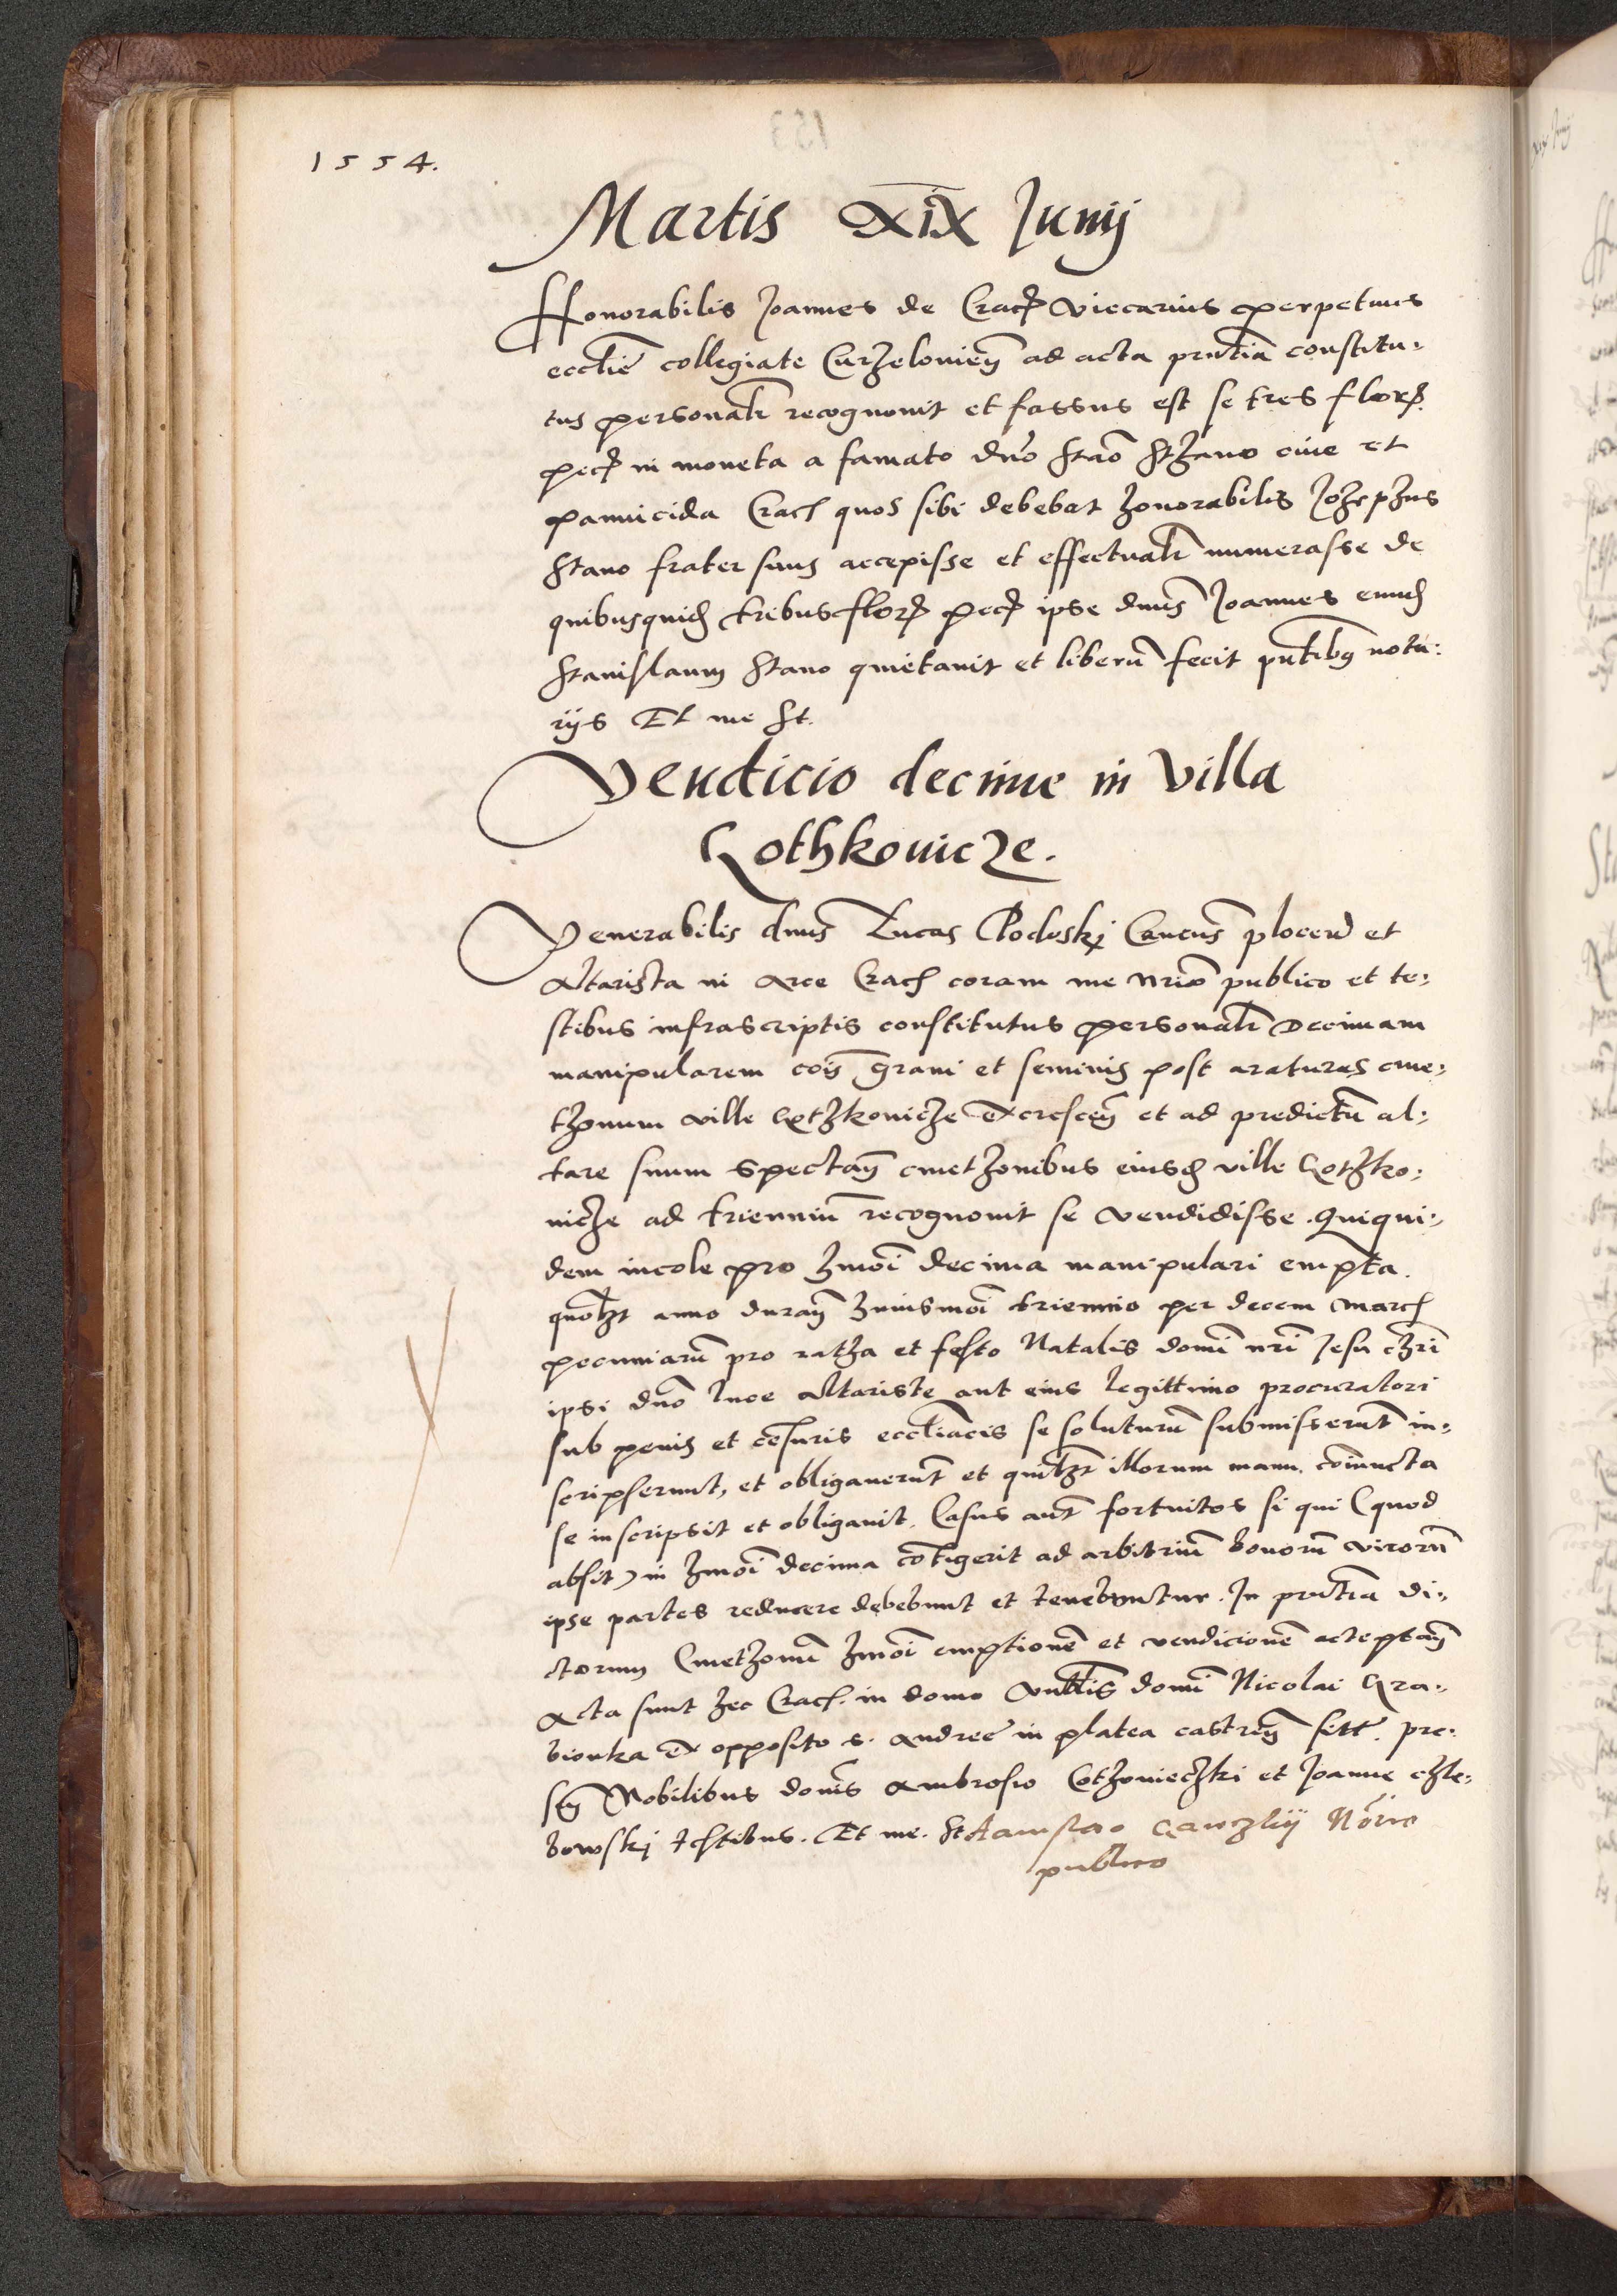 1554.
Martis XIX Junij
Honorabilis Joannes de Crac viccarius perpetuus
ecclie collegiate Curzelovien ad acta pntia constitu-
tus personalr recognovit et fassus est se tres flor
pec in moneta a famato dno Stano cive et
pannicida Crac quos sibi debebat honorabilis Josephus
Stano frater suus accepisse et effectualr numerasse de
quibusquid tribus flor pec ipse dnus Joannes eund
Stanislaum Stano quietavit et liberu fecit pntibus nota:
rijs Et me St.
Vendicio decime in Villa
Gothkovicze.
Venerabilis dnus Lucas Podoski Cancus plocen et
Altarista in Arce Crac coram me nrio publico et te-
stibus infrascriptis constitutus personalr Decimam
manipularem cois grani et seminis post araturas cme-
thonum ville Gothkovicze excrescen et ad predictu al-
tare suum spectan cmethonibus eiusd ville Gothko-
vicze ad trienniu recognovit se vendidisse. Quiqui-
dem incole pro hmoi decima manipulari empta.
quolbt anno duran huiusmoi triennio per decem marc
pecuniaru pro ratha et festo Natalis domi nri Jesu chri
ipsi dno Luce Altariste aut eius legittimo procuratori
sub penis et cesuris eccliacis se soluturu submisserunt in-
scripserunt, et obligaverunt et quilbt illorum manu coniuncta
se inscripsit et obligavit. Casus aut fortuitos si qui (quod
absit) in hmoi decima cotigerit ad arbitriu bonoru viroru
ipse partes reducere debebunt et tenebuntur. In pntia di-
ctorum Cmethonu hmoi emptione et vendicione acceptan
Acta sunt hec Crac. in domo Vnblis domi Nicolai Gra-
bionka ex opposito s. Andree in platea castren sitt. pre-
sen Nobilibus donis Ambrosio et Joanne chle-
bowskj testibus. Et me. Stanislao Nrio
publico